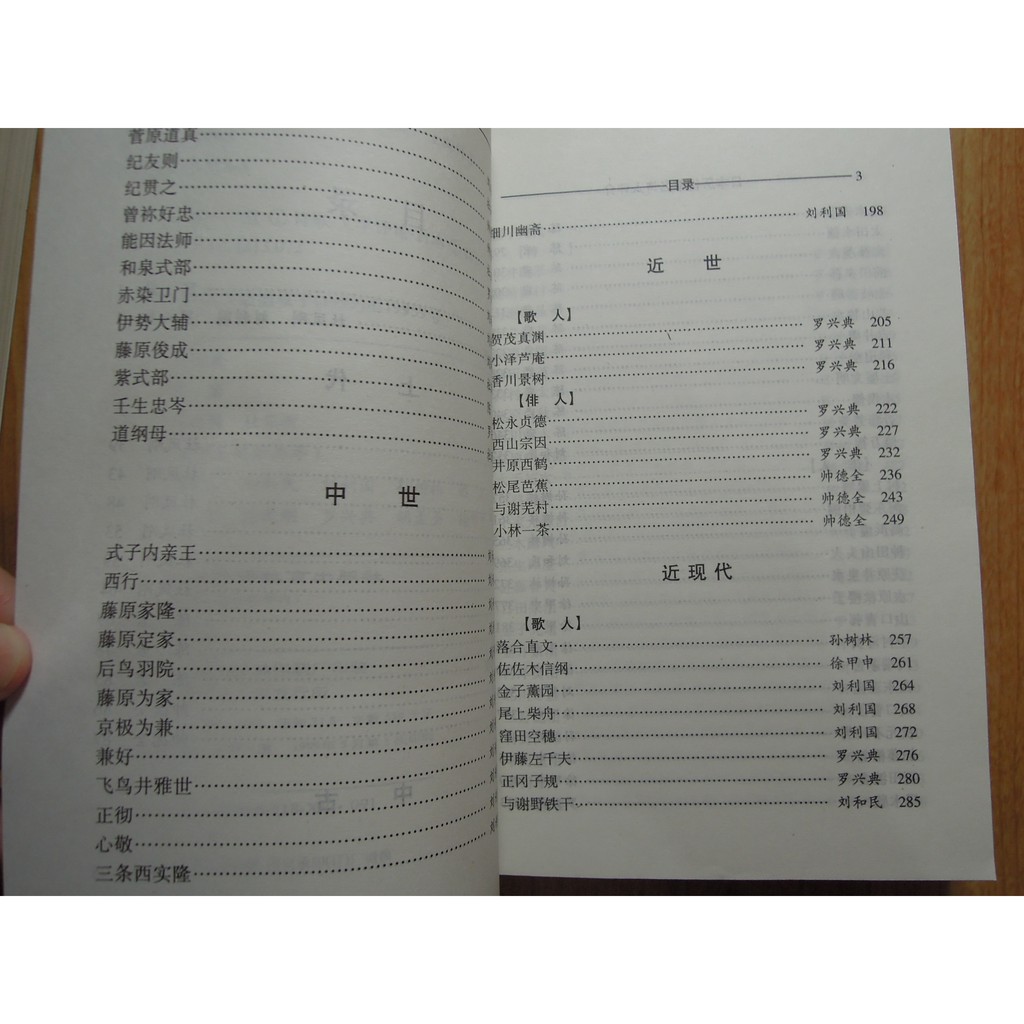 菅原道真
纪友则
纪贯之
曾祢好忠
能因法师
和泉式部
赤染卫门
伊势大辅
藤原俊成
紫式部
壬生忠岑
道纲母
中 世
式子内亲王
西行
藤原家隆
藤原定家
后鸟羽院
藤原为家
京极为兼
兼好
飞鸟井雅世
正彻
心敬
三条西实隆
目录 3
细川幽斋 刘利国 198
近 世
【歌 人】
贺茂真渊 罗兴典 205
小泽芦庵 罗兴典 211
香川景树 罗兴典 216
【俳 人】
松永贞德 罗兴典 222
西山宗因 罗兴典 227
井原西鹤 罗兴典 232
松尾芭蕉 帅德全 236
与谢芜村 帅德全 243
小林一茶 帅德全 249
近现代
【歌 人】
落合直文 孙树林 257
佐佐木信纲 徐甲申 261
金子薰园 刘利国 264
尾上柴舟 刘利国 268
窪田空穗 刘利国 272
伊藤左千夫 罗兴典 276
正冈子规 罗兴典 280
与谢野铁干 刘和民 285